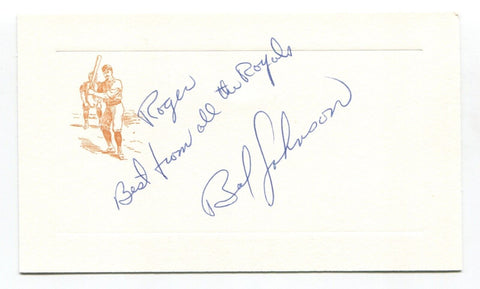 Roger
Best from all the Royals
Bob Johnson